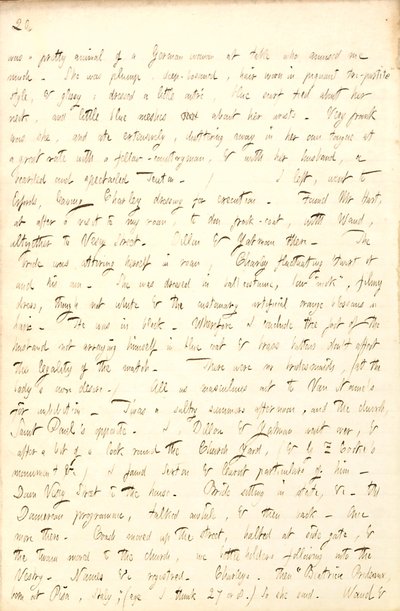 22
was a pretty animal of a German woman at table who amused me
much. She was plump, deep-bosomed, hair worn in piquant
style, & glossy; dressed a little outré, blue scarf tied about her
and little blue about her wrists. Very proud
was she, and ate extensively, chattering away in her own tongue at
a great rate with a fellow-countryman, & with her husband, a
bearded and spectacled Teuton. / I left, went to
leaving Charley dressing for execution. Found Mr Hart,
at after a visit to my room, to don frock-coat, with Waud,
altogether to Vesey Street. Dillon & Yatman there. The
bride was attiring herself in room Charley fluctuating 'twixt it
and his own. She was dressed in ball costume, "low neck", flimsy
dress, though not white & the customary artificial orange blossoms in
hair. He was in black. Wherefore I conclude the fact of the
husband not arraying himself in blue coat & brass buttons don't affect
the legality of the match. There were no bridesmaids, at the
lady's own desire. / All us masculines out to Van
for imbibition. 'Twas a sultry summer afternoon, and the church,
Saint Paul's opposite. I, Dillon & Yatman went over, &
after a bit of a look round the Church Yard, (& G F Cooke's
monument &c,) I found Sexton & learnt particulars of him.
Down Vesey Street to the house. Bride sitting in state, &c. The
programme, talked awhile, & then back. One
more there. Bride moved up the street, halted at side gate, &
the twain moved to the church, we following into the
Vestry. Names &c registered. Charley's, then "Beatrice
born at Pisa, Italy; (age I think 27 or 8.) So she said. Waud &